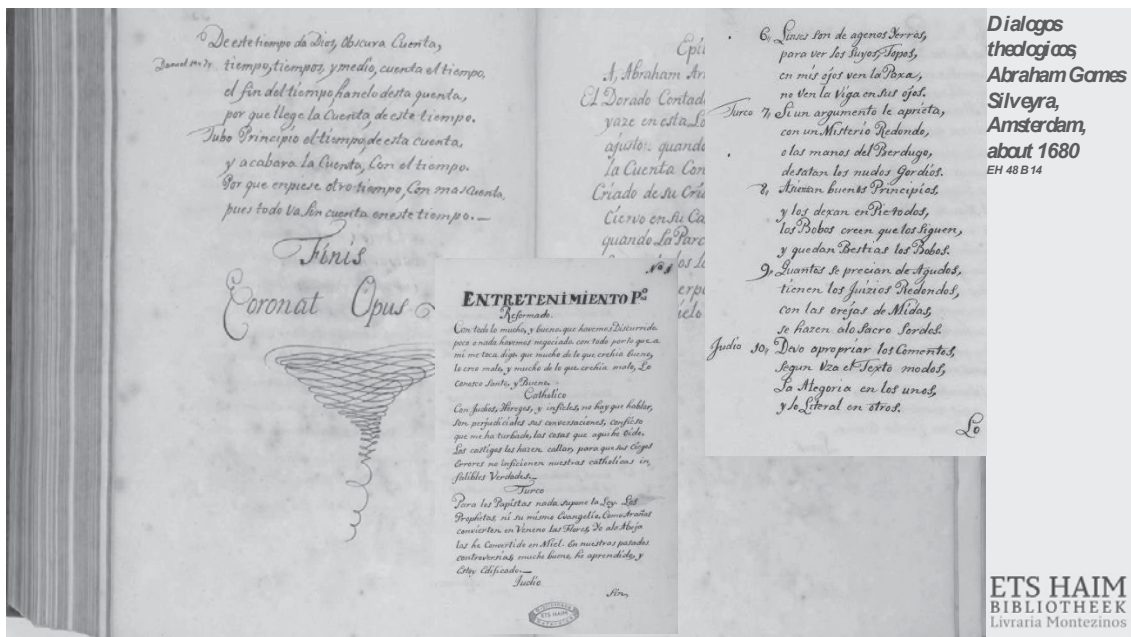 De este tiempo da Dios, Obscura Cuenta,
tiempo, tiempos, y medio, cuenta el tiempo,
el fin del tiempo hanelo desta quenta,
por que llege la Cuenta, de este tiempo.
Tubo Principio el tiempo, de esta cuenta,
y acabara la Cuenta, Con el tiempo.
Por que enpiese otro tiempo, Con mas Cuenta,
pues todo va sin cuenta en este tiempo.
Finis
Coronat Opus
A, Abraham
El Dorado Contad
yaze en esta
quando
la Cuenta Con
Criado de su
Ciervo en su Ca
quando La Parc
No. 1
ENTRETENIMIENTO Pº
Reformado.
Con todo lo mucho, y bueno, que havemos Discurrido
poco o nada havemos negociado. con todo por lo que, a
mi me toca digo, que mucho de lo que crehia bueno,
lo creo malo, y mucho de lo que crehia malo, Lo
Conosco Santo, y Bueno.
Catholico
Con Judios, Hereges, y infieles, no hay que hablar,
son perjudiciales sus conversaciones, confieso
que me ha turbado, las cosas que aqui he Oido.
Los castigos los hazen callar, para que sus Ciegos
Errores no inficionen nuestras catholicas in,
falibles Verdades.
Turco
Para los Papistas nada supone la Ley. Los
Prophetas, ni su mismo Evangelio. Como Arañas
convierten en Veneno las Flores, Yo alo Abeja
las he Convertido en Miel. En nuestras pasadas
controversias, mucho bueno he aprendido, y
Estoy Edificado.
Judio
Sin,
ETS HAIM
6, Linses son de agenos Yerros,
para ver los suyos, Topos,
en mis ojos ven la Paxa,
no ven la Viga en sus ojos.
Turco 7, Si un argumento le aprieta,
con un Misterio Redondo,
o las manos del Berdugo,
desatan los nudos Gordios.
8, buenos Principios,
y los dexan en
los Bobos creen que los siguen,
y quedan Bestias los Bobos.
9, Quantos se precian de Agudos,
tienen los Juizios Redondos,
con las orejas de Midas,
se hazen alo Sacro Sordos.
Judio 10, Devo apropriar los Comentos,
segun Vza el Texto modos,
La Alegoria en los unos,
y lo Literal en otros.
Lo
Dialogos
theologicos,
Abraham Gomes
Silveyra,
Amsterdam,
about 1680
EH 48 B 14
ETS HAIM
BIBLIOTHEEK
Livraria Montezinos